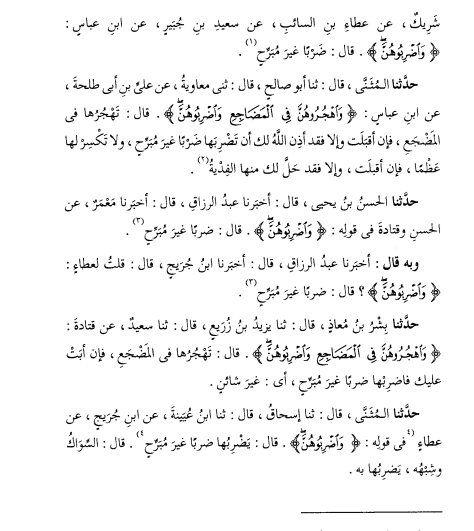 شَرِيكٌ ، عن عطاءِ بنِ السائبِ ، عن سعيدِ بنِ جُبَيرٍ ، عن ابنِ عباسٍ :
﴿ وَاضْرِبُوهُنَّ ﴾ . قال : ضَرْبًا غيرَ مُبَرِّحٍ(١) .
حدَّثنا المُثَنَّى ، قال : ثنا أبو صالحٍ ، قال : ثنى معاويةُ ، عن علىِّ بنِ أبى طلحةَ ،
عن ابنِ عباسٍ : ﴿ وَاهْجُرُوهُنَّ فِي الْمَضَاجِعِ وَاضْرِبُوهُنَّ ﴾ . قال : تَهْجُرُها فى
المَضْجَعِ ، فإن أقبَلَت وإلا فقد أذِن اللَّهُ لك أن تَضْرِبَها ضَرْبًا غيرَ مُبَرِّحٍ ، ولا تَكْسِرْ لها
عَظْمًا ، فإن أقبلَت ، وإلا فقد حَلَّ لك منها الفِدْيةُ(٢) .
حدَّثنا الحسنُ بنُ يحيى ، قال : أخبَرنا عبدُ الرزاقِ ، قال : أخبَرنا مَعْمَرٌ ، عن
الحسنِ وقتادةَ فى قولِه : ﴿ وَاضْرِبُوهُنَّ ﴾ . قال : ضربًا غيرَ مُبَرِّحٍ(٣) .
وبه قال : أخبَرنا عبدُ الرزاقِ ، قال : أخبَرنا ابنُ جُرَيجٍ ، قال : قلتُ لعطاءٍ :
﴿ وَاضْرِبُوهُنَّ ﴾ ؟ قال : ضربًا غيرَ مُبَرِّحٍ(٣) .
حدَّثنا بِشْرُ بنُ مُعاذٍ ، قال : ثنا يزيدُ بنُ زُرَيعٍ ، قال : ثنا سعيدٌ ، عن قتادةَ :
﴿ وَاهْجُرُوهُنَّ فِي الْمَضَاجِعِ وَاضْرِبُوهُنَّ ﴾ . قال : تَهْجُرُها فى المَضْجَعِ ، فإن أبَتْ
عليك فاضرِبْها ضربًا غيرَ مُبَرِّحٍ ، أى : غيرَ شائنٍ .
حدَّثنا المُثَنَّى ، قال : ثنا إسحاقُ ، قال : ثنا ابنُ عُيَينةَ ، عن ابنِ جُرَيجٍ ، عن
عطاءٍ (٤فى قولِه : ﴿ وَاضْرِبُوهُنَّ ﴾ . قال : يَضْرِبُها ضربًا غيرَ مُبَرِّحٍ٤) . قال : السِّواكُ
وشِبْهُه ، يَضرِبُها به .